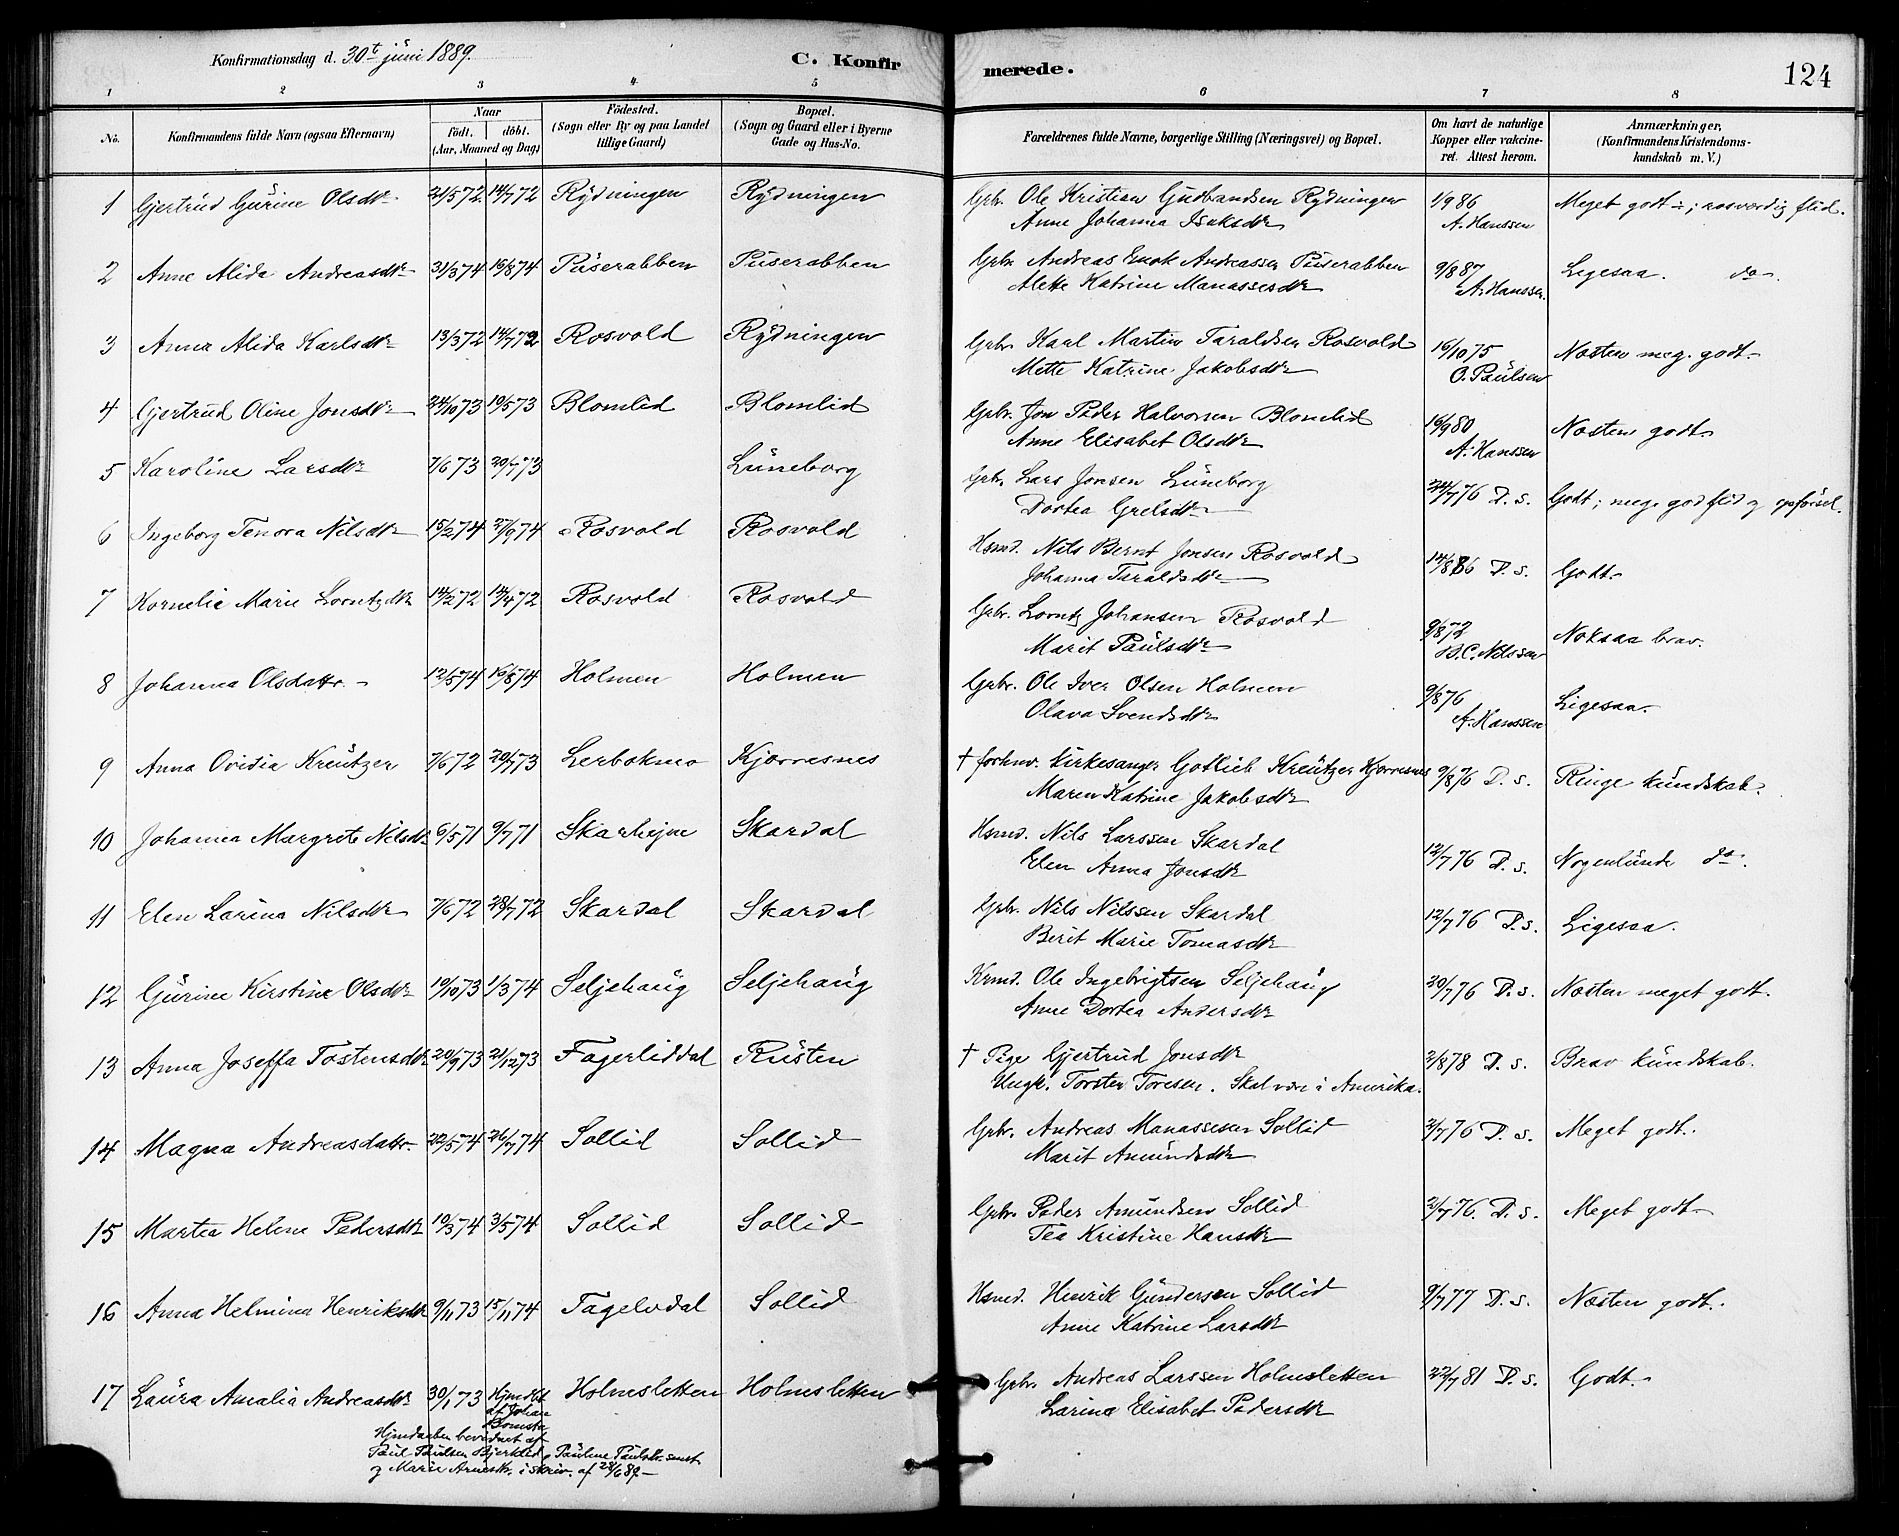 Konfirmationsdag d. 30t juni 1889.
C. Konfirmerede.
124
1 2 3 4 5 6 7 8
No.
Konfirmandens fulde Navn (ogsaa Efternavn)
Naar
födt. | döbt.
(Aar, Maaned og Dag)
Födested.
(Sogn eller By og paa Landet
tillige Gaard)
Bopæl.
(Sogn og Gaard eller i Byerne
Gade og Hus-No.
Forældrenes fulde Navne, borgerlige Stilling (Næringsvei) og Bopæl.
Om havt de naturlige
Kopper eller vakcine-
ret. Attest herom.
Anmærkninger,
(Konfirmandens Kristendoms-
kundskab m. V.)
1 Gjertrud Gurine Olsdtr 21/5 72 14/7 72 Rydningen Rydningen Gbr. Ole Kristian Gudbandsen Rydningen 1/9 86 Meget godt; rosværdig flid.
Anne Johanna Isaksdtr A. Hanssen
2 Anne Alida Andreasdtr 31/3 74 16/8 74 Puserabben Puserabben Gbr. Andreas Enok Andreassen Puserabben 9/8 87 Ligesaa. do.
Mette Katrine Manassesdtr A. Hanssen.
3 Anna Alida Karlsdtr 13/3 72 14/7 72 Rosvold Rydningen Gbr. Karl Martin Taraldsen Rosvold 16/10 75 Næsten meg. godt.
Mette Katrine Jakobsdtr O. Paulsen
4 Gjertrud Oline Jonsdtr 24/10 73 19/5 73 Blomlid Blomlid Gbr. Jon Peder Halvorsen Blomlid 16/9 80 Næsten godt.
Anne Elisabet Olsdtr A. Hanssen
5 Karoline Larsdtr 7/6 73 20/7 73 Luneborg Gbr. Lars Jonsen Luneborg 24/7 76 D. s. Godt; meget god flid og opførsel.
Dortea Grelsdtr
6 Ingeborg Tenora Nilsdtr 15/2 74 27/9 74 Rosvold Rosvold Hsmd. Nils Bernt Jonsen Rosvold 14/8 86 D. s. Godt.
Johanna Taraldsdtr
7 Kornelie Marie Lorntzdtr 14/2 72 14/4 72 Rosvold Rosvold Gbr. Lorntz Johansen Rosvold 9/8 72 Noksaa brav.
Marit Paulsdtr B.C. Nilssen
8 Johanna Olsdattr. 12/5 74 16/8 74 Holmen Holmen Gbr. Ole Iver Olsen Holmen 9/8 76 Ligesaa.
Olava Svendsdtr A. Hanssen
9 Anna Ovidia Kreutzer 7/6 72 20/7 73 Lerbakmo Kjørresnes † forhnv. kirkesanger Gotlieb Kreutzer Kjørresnes 9/8 76 D. s. Ringe kundskab.
Maren Katrine Jakobsdtr
10 Johanna Margrete Nilsdtr 6/5 71 9/7 71 Skarhejne Skardal Hsmd. Nils Larssen Skardal 12/7 76 D. s. Nogenlunde do.
Elen Anna Jonsdtr
11 Elen Larina Nilsdtr 7/6 72 28/7 72 Skardal Skardal Gbr. Nils Nilssen Skardal 12/7 76 D. s. Ligesaa.
Berit Marie Tomasdtr
12 Gurine Kirstine Olsdtr 19/10 73 1/3 74 Seljehaug Seljehaug Krmd. Ole Ingebrigtsen Seljehaug 20/7 76 D. s. Næsten meget godt.
Anne Dortea Andersdtr
13 Anna Joseffa Tostensdtr 20/9 73 21/12 73 Fagerliddal Rusten † Pige Gjertrud Jonsdtr 2/8 78 D. s. Brav kundskab.
Ungk. Torsten Toresen. Skal være i Amerika.
14 Magna Andreasdattr. 22/5 74 26/7 74 Sollid Sollid Gbr. Andreas Manassesen Sollid 3/7 76 D. s. Meget godt.
Marit Amundsdtr
15 Martea Helene Pedersdtr 19/3 74 3/5 74 Sollid Sollid Gbr. Peder Amundsen Sollid 2/7 76. D. s. Meget godt
Tea Kristine Hansdtr
16 Anna Helmina Henriksdtr 9/11 73 15/11 74 Fagelvdal Sollid Hsmd. Henrik Gundersen Sollid 9/7 77 D. s. Næsten godt.
Anne Katrine Larsdtr
17 Laura Amalia Andreasdtr 30/1 73 Hjmdbt Holmesletten Holmesletten Gbr. Andreas Larssen Holmesletten 22/7 81 D. s. Godt.
af Johan Larina Elisabet Pedersdtr
Bomstu
Hjmdaaben bevidnet af
Paul Paulsen Bjerklid, Pauline Paulsdtr. smst
og Marie Arnesdtr. i skriv. af 28/6 89.